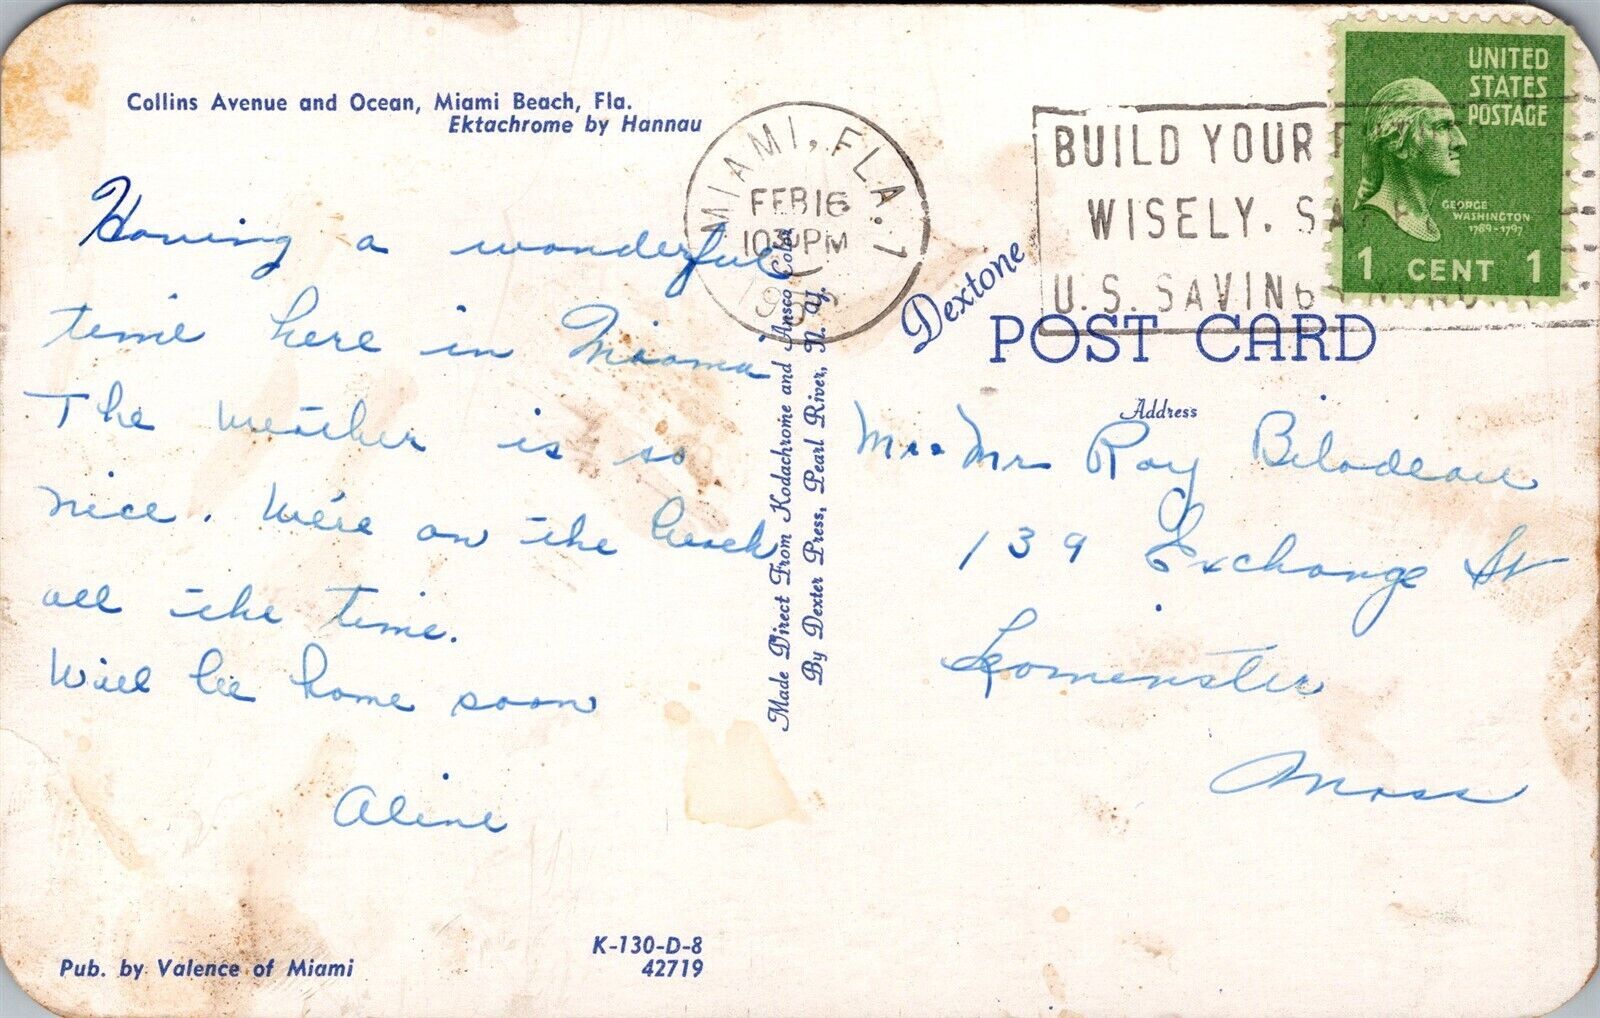 Collins Avenue and Ocean, Miami Beach, Fla.
Ektachrome by Hannau
Having a wonderful
time here in Miami
The weather is so
nice. We're on the beach
all the time.
Will be home soon
Aline
Pub. by Valence of Miami
K-130-D-8
42719
Made Direct From Kodachrome and Ansco Color
By Dexter Press, Pearl River, N. Y.
MIAMI, FLA. 7
FEB 16
PM
BUILD YOUR
WISELY.
U.S. SAVINGS
UNITED
STATES
POSTAGE
GEORGE
WASHINGTON
1789-1797
1 CENT 1
Dextone
POST CARD
Address
Mr. Mr Roy Bilodeau
139 Exchange St
Leominster
Mass